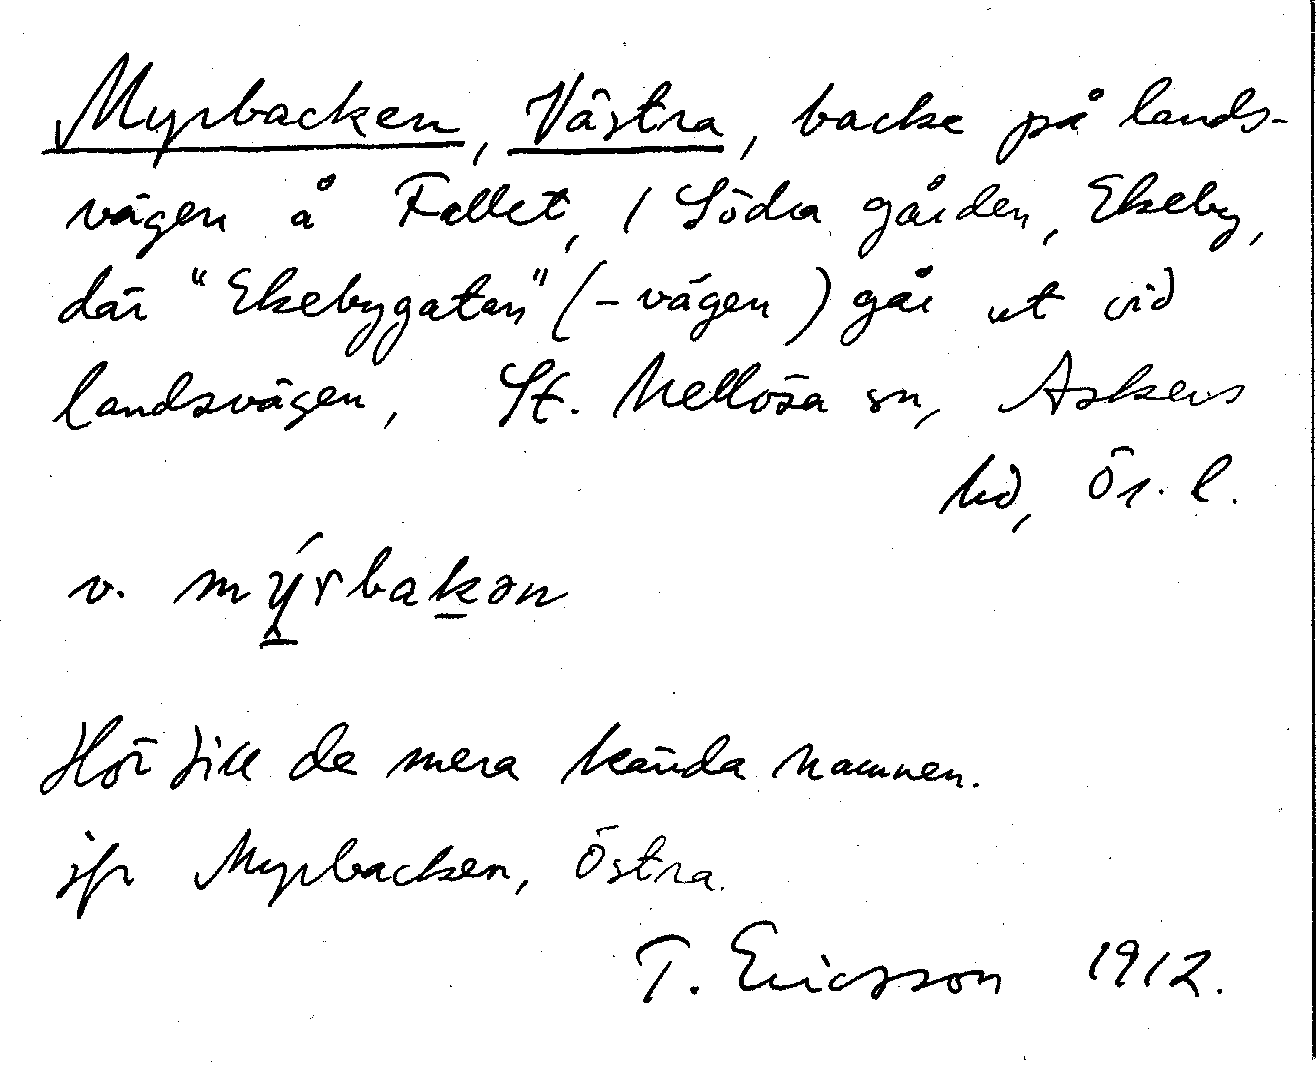 Myrbacken, Västra, backe på lands-
vägen å Fallet, / Södra gården, Ekeby,
där "Ekebygatan" (-vägen) går ut vid
landsvägen, St. Mellösa sn, Askers
hd, Ör. l.
v. mýrbakən
Hör till de mera kända namnen.
jfr Myrbacken, Östra.
T. Ericsson 1912.